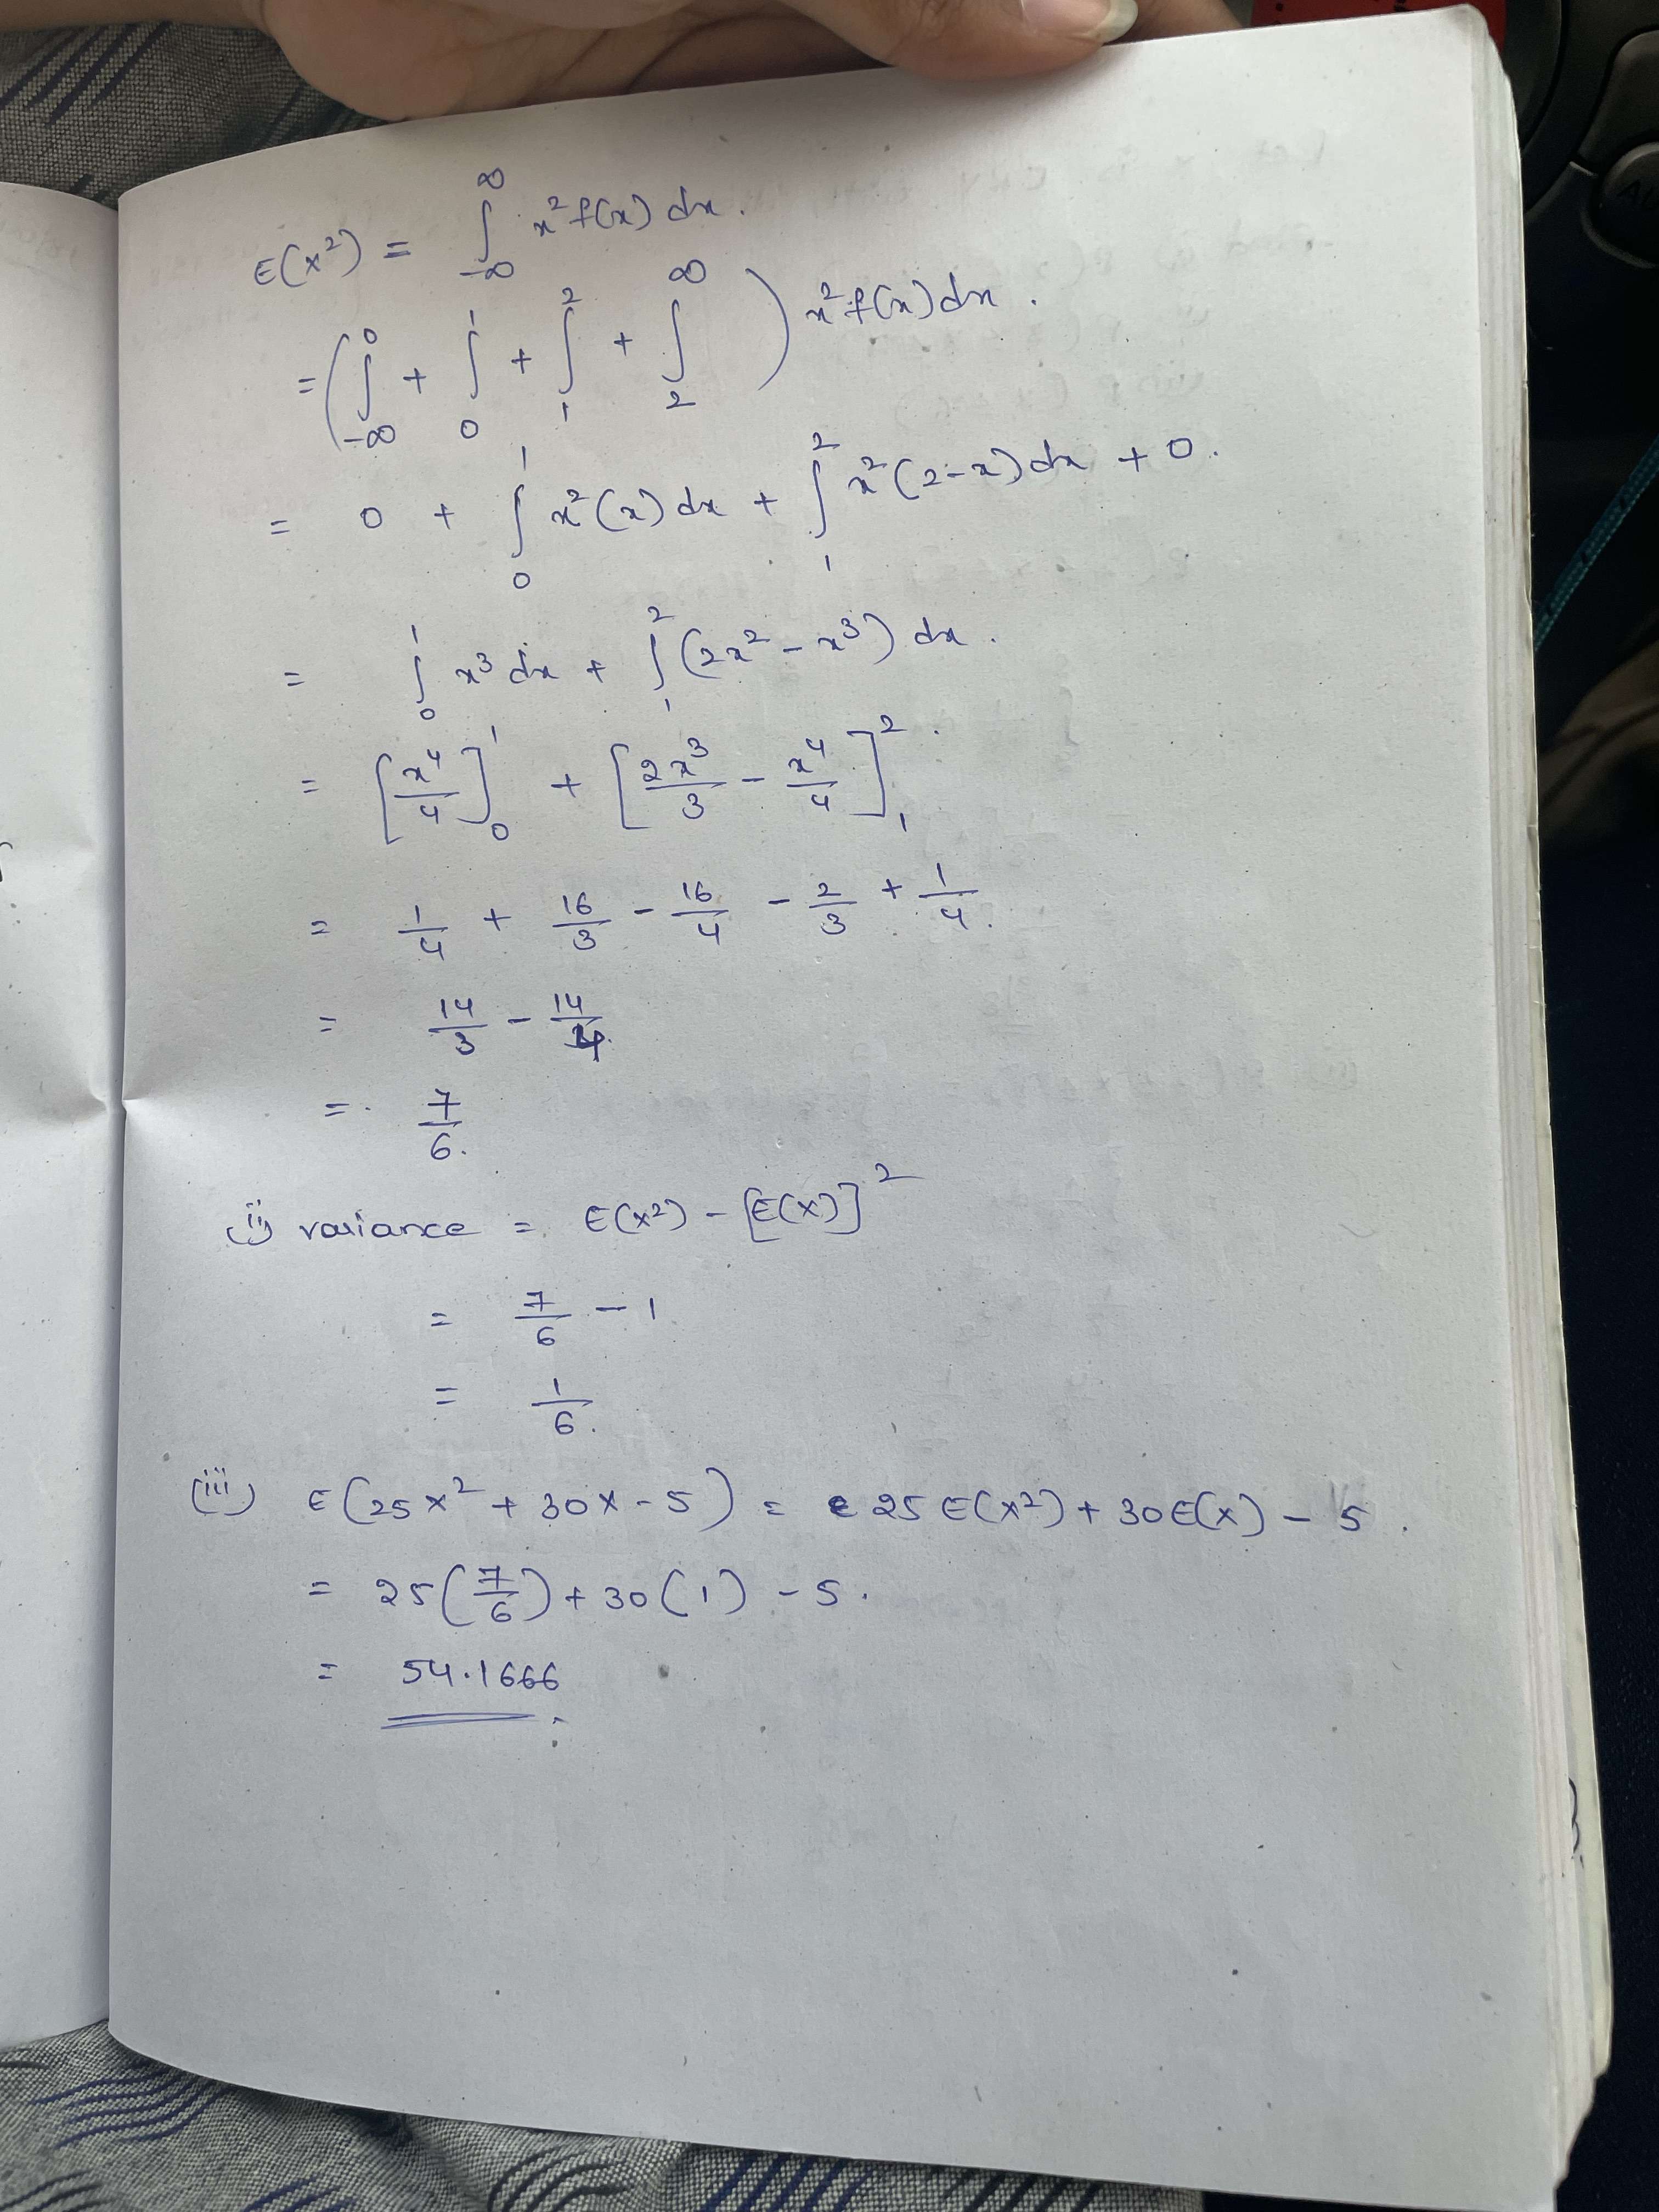 E(x²) = ∫_{-∞}^{∞} x² f(x) dx.
= (∫_{-∞}^{0} + ∫_{0}^{1} + ∫_{1}^{2} + ∫_{2}^{∞}) x² f(x) dx.
= 0 + ∫_{0}^{1} x² (x) dx + ∫_{1}^{2} x² (2-x) dx + 0.
= ∫_{0}^{1} x³ dx + ∫_{1}^{2} (2x² - x³) dx.
= [x⁴/4]_{0}^{1} + [2x³/3 - x⁴/4]_{1}^{2}.
= 1/4 + 16/3 - 16/4 - 2/3 + 1/4.
= 14/3 - 14/4.
= 7/6.
(ii) variance = E(x²) - [E(X)]²
= 7/6 - 1
= 1/6.
(iii) E(25x² + 30x - 5) = 25 E(x²) + 30E(x) - 5.
= 25(7/6) + 30(1) - 5.
= 54.1666